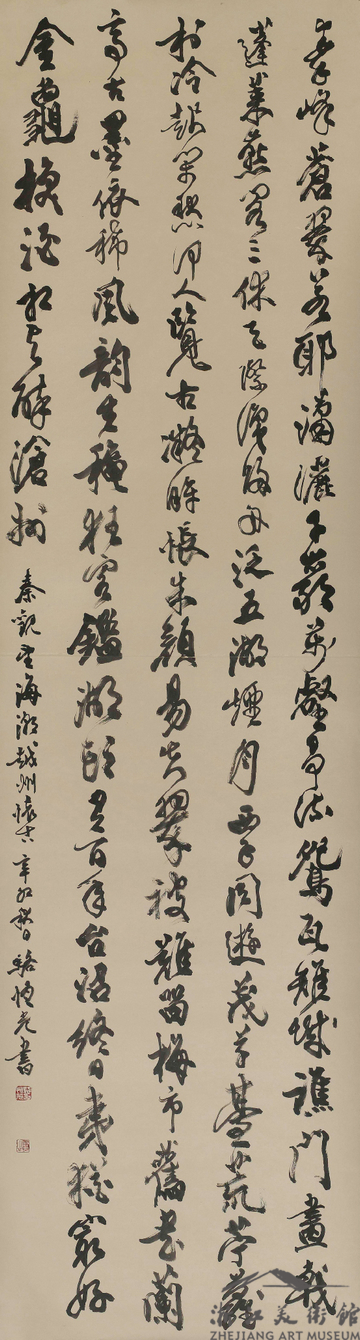 秦峰蒼翠若耶瀟灑千巖萬壑爭流鴛瓦雉城譙門畫戟
蓬萊燕閣三休天際識歸舟泛五湖煙月西子同遊茂草臺荒苧蘿
村冷起閒愁何人覽古凝眸悵朱顏易失翠被難留梅市舊書蘭
亭古墨依稀風韻生穐狂客鑑湖頭有百年台沼終日夷猶最好
金龜換酒相與醉滄洲
秦觀望海潮越州懷古辛卯秋日駱恒光書
浙江美術館
ZHEJIANG ART MUSEUM